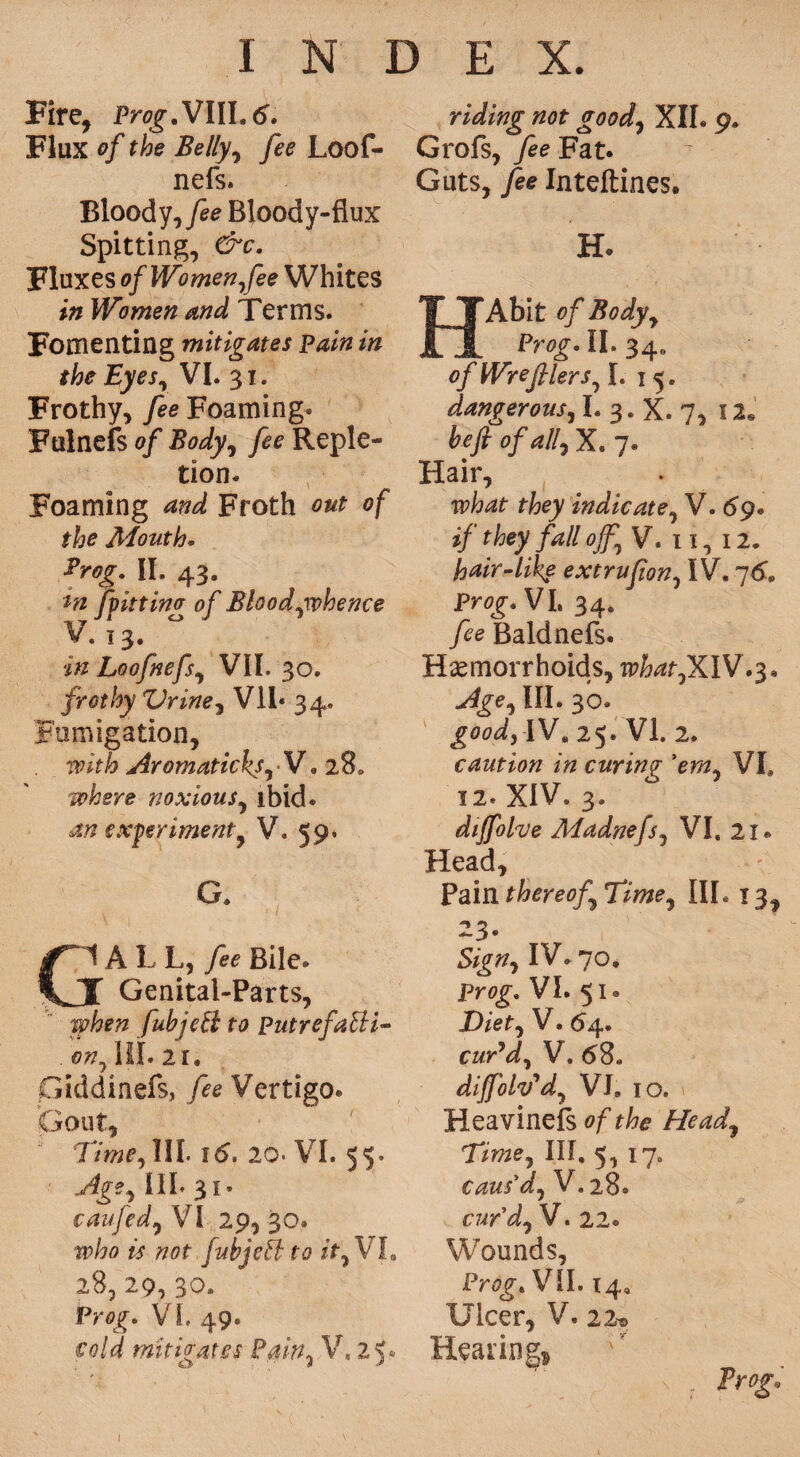 INDEX.
Fire, Prog. VIII. 6.
Flux of the Belly, ſee Looſ-
neſs.
Bloody, ſee Bloody-flux
Spitting, &c.
Fluxes of Women, ſee Whites
in Women and Terms.
Fomenting mitigates Pain in
the Eyes, VI. 31.
Frothy, ſee Foaming.
Fulneſs of Body, ſee Reple-
tion.
Foaming and Froth out of
the Mouth.
Prog. II. 43.
in ſpitting of Blood, whence
V. 13.
in Looſneſs, VII. 30.
frothy Urine, VII. 34.
Fumigation,
with Aromaticks, V. 28.
where noxious, ibid.
an experiment, V. 59.
G.
GALL, ſee Bile.
Genital-Parts,
when ſubject to Putrefacti-
on, III. 21.
Giddineſs, ſee Vertigo.
Gout,
Time, III. 16. 20. VI. 55.
Age, III. 31.
cauſed, VI 29, 30.
who is not ſubject to it, VI.
28, 29, 30.
Prog. VI. 49.
cold mitigates Pain, V. 25.
riding not good, XII. 9.
Groſs, ſee Fat.
Guts, ſee Inteſtines.
H.
HAbit of Body,
Prog. II. 34.
of Wreſtlers, I. 15.
dangerous, I. 3. X. 7, 12.
beſt of all, X. 7.
Hair,
what they indicate, V. 69.
if they fall off, V. 11, 12.
hair-like extruſion, IV. 76.
Prog. VI. 34.
ſee Baldneſs.
Hæmorrhoids, what, XIV. 3.
Age, III. 30.
good, IV. 25. VI. 2.
caution in curing 'em, VI.
12. XIV. 3.
diſſolve Madneſs, VI. 21.
Head,
Pain thereof, Time, III. 13,
23.
Sign, IV. 70.
Prog. VI. 51.
Diet, V. 64.
cur'd, V. 68.
diſſolv'd, VI. 10.
Heavineſs of the Head,
Time, III. 5, 17.
caus'd, V. 28.
cur'd, V. 22.
Wounds,
Prog. VII. 14.
Ulcer, V. 22.
Hearing,
Prog.